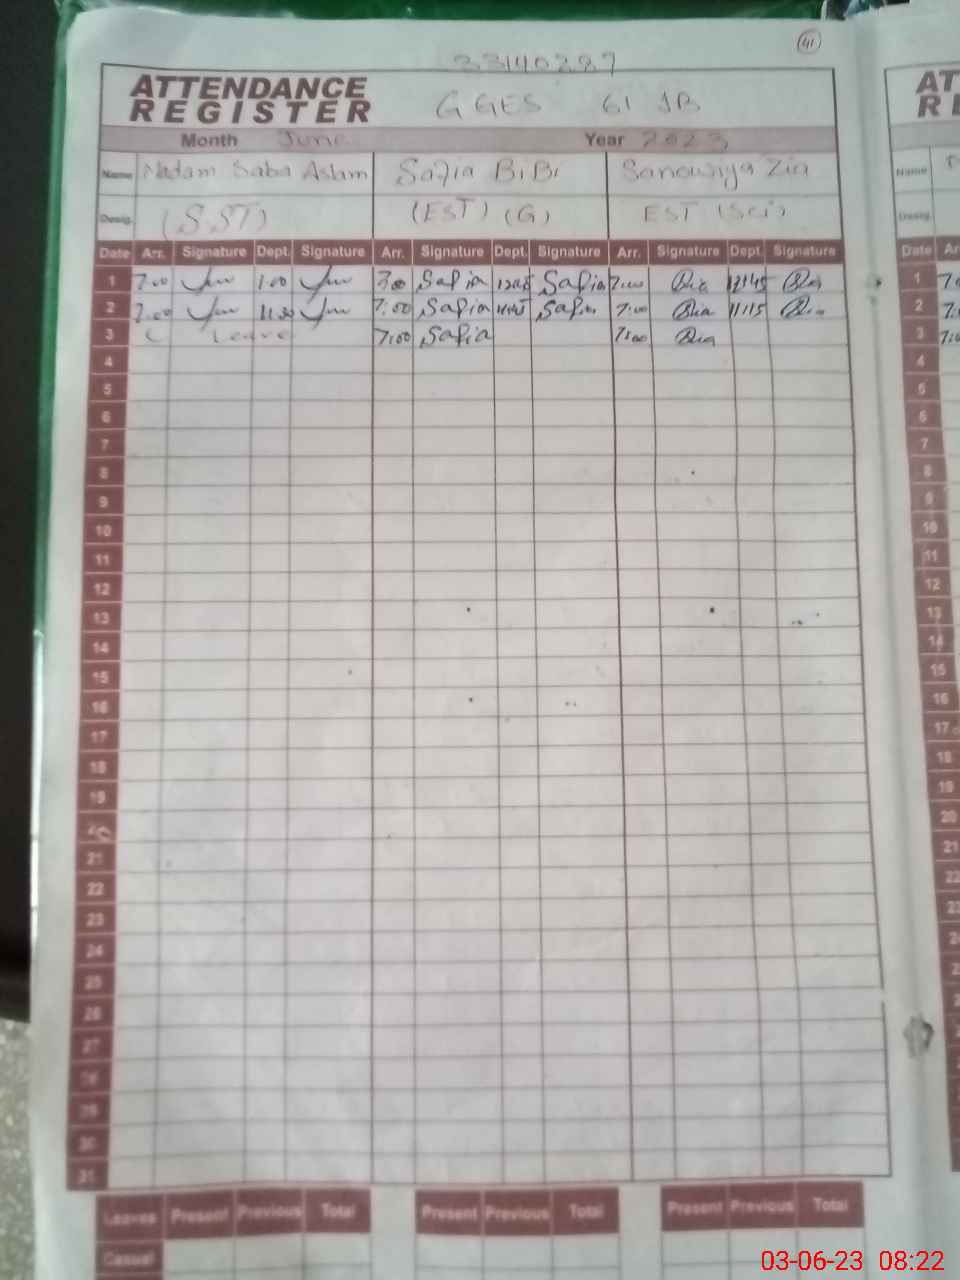 41
33140287
ATTENDANCE
REGISTER
GGES 61 JB
Month June Year 2023
Name Madam Saba Aslam Safia BiBi Sanowiya Zia
Desig. (S.ST) (EST) (G) EST (Sci)
Date Arr. Signature Dept. Signature Arr. Signature Dept. Signature Arr. Signature Dept. Signature
1 7:00 1:00 7:00 Safia Safia 7:00 Zia 12:45 Zia
2 7:00 11:30 7:00 Safia 11:15 Safia 7:00 Zia 11:15 Zia
3 Leave 7:00 Safia 7:00 Zia
4
5
6
7
8
9
10
11
12
13
14
15
16
17
18
19
20
21
22
23
24
25
26
27
28
29
30
31
Leaves Present Previous Total Present Previous Total Present Previous Total
Casual
AT
RE
Name
Desig.
Date Ar
1
2
3
4
5
6
7
8
9
10
11
12
13
14
15
16
17
18
19
20
21
22
23
03-06-23 08:22